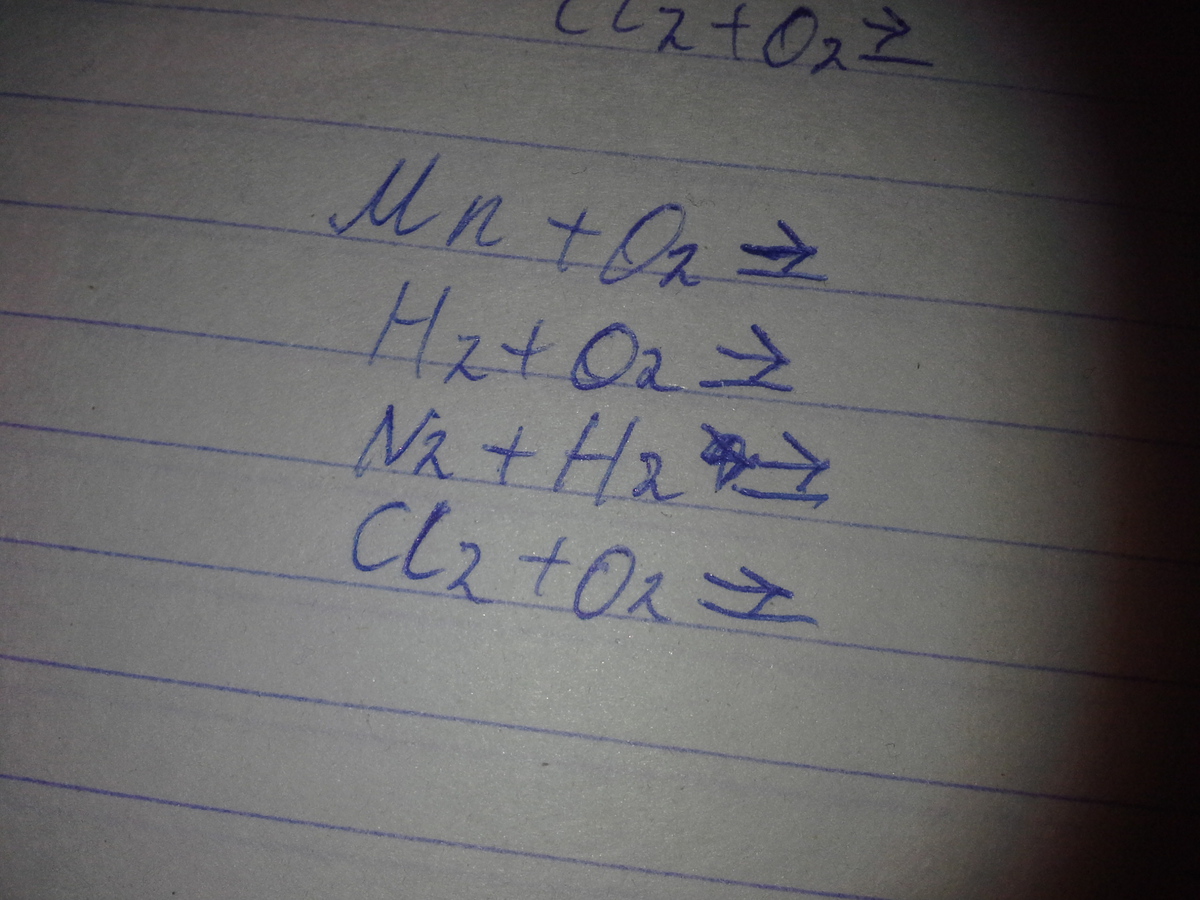 Cl2 + O2 →
Mn + O2 →
H2 + O2 →
N2 + H2 →
Cl2 + O2 →